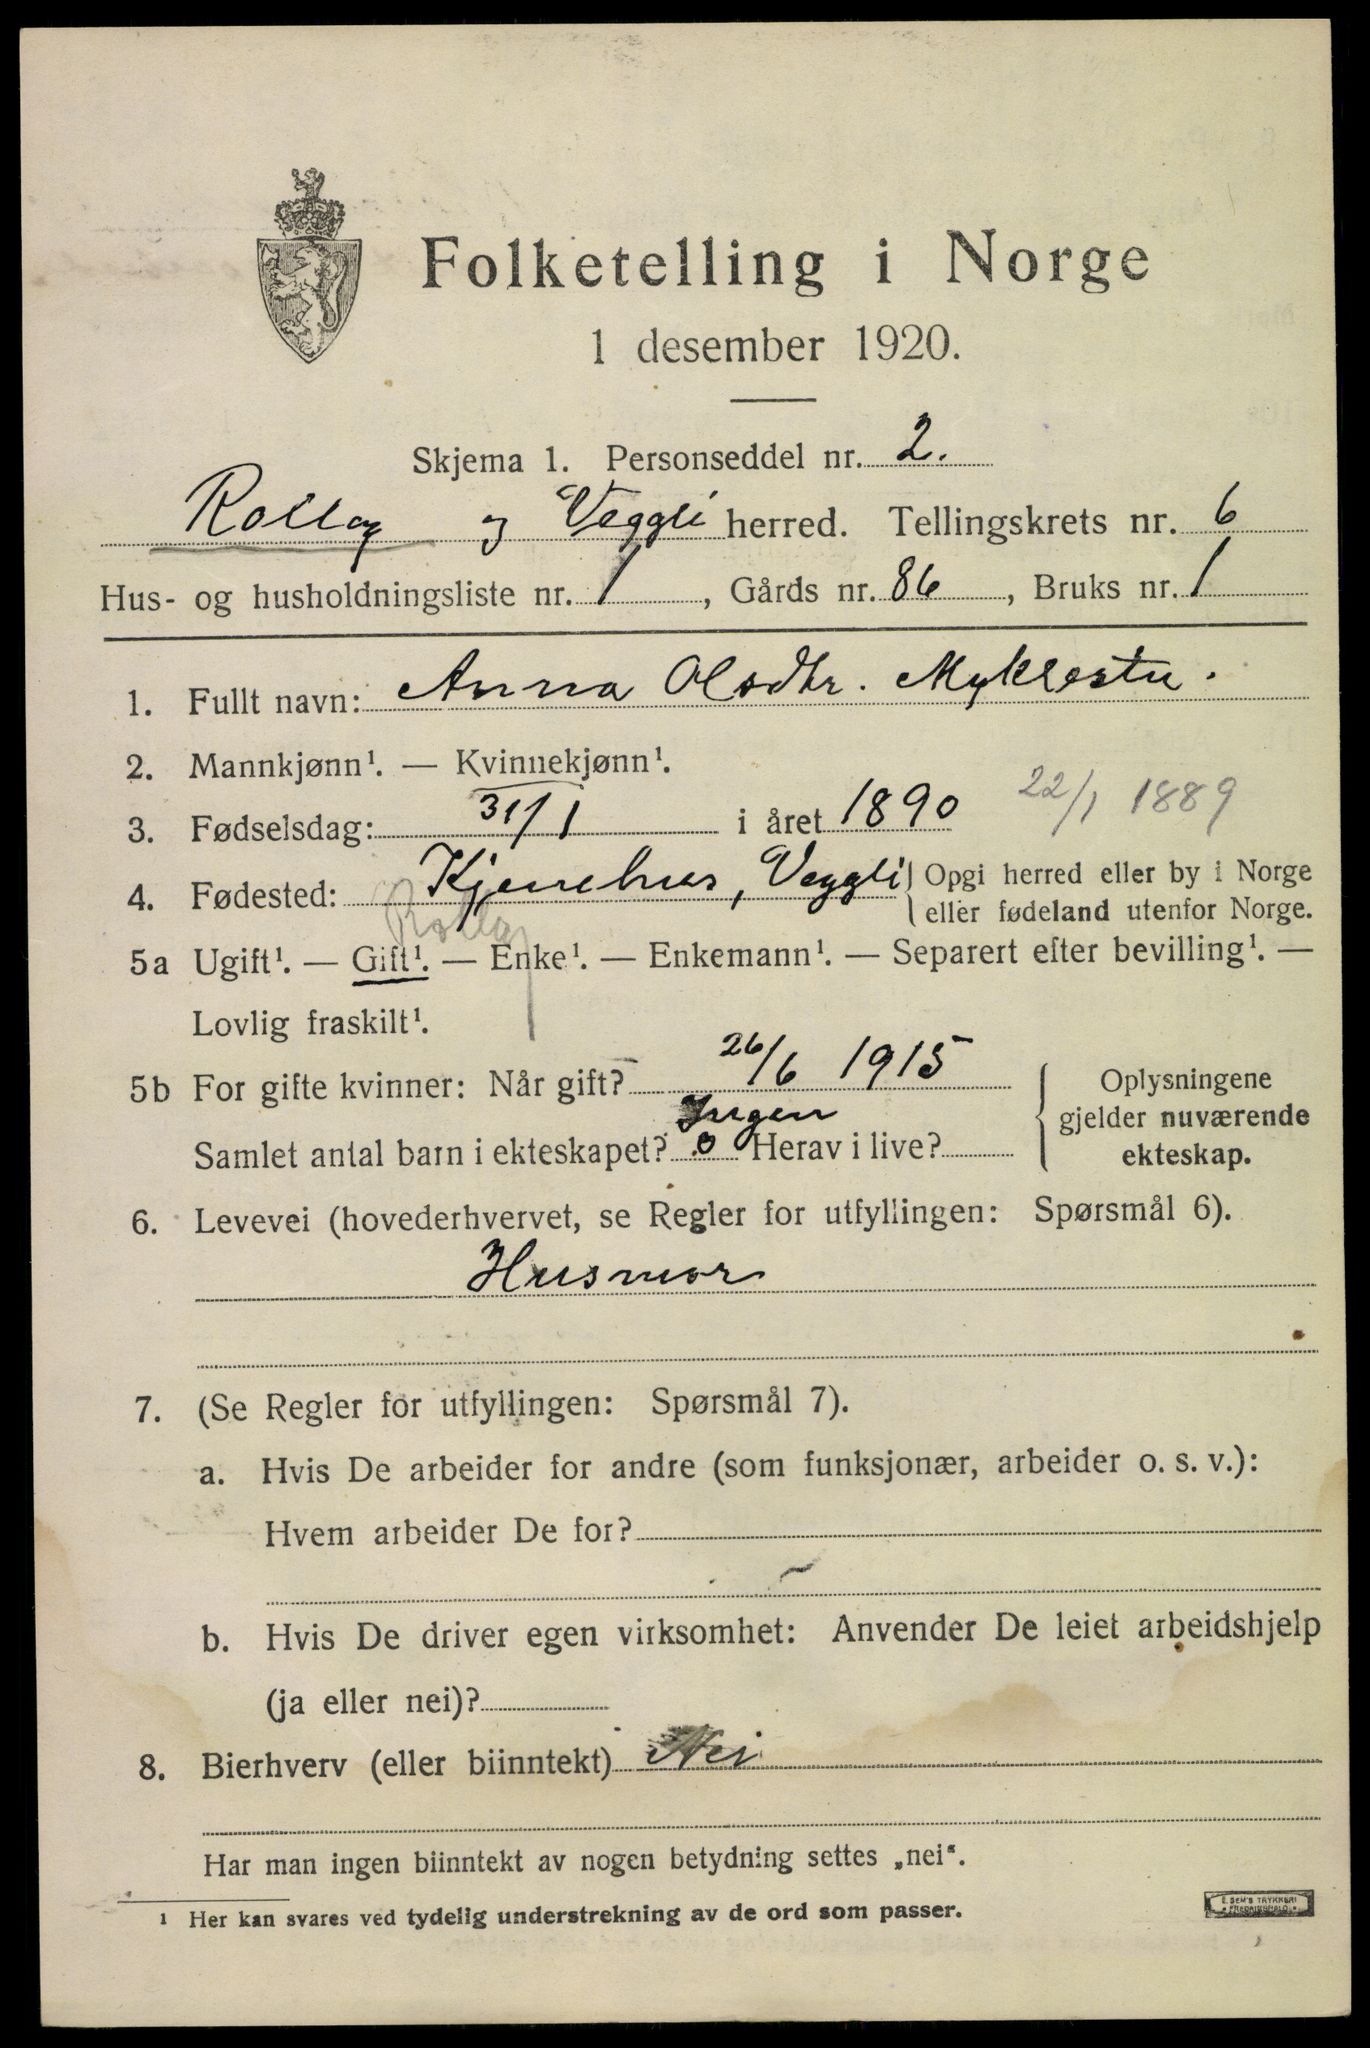 Folketelling i Norge
1 desember 1920.
Skjema 1. Personseddel nr. 2.
Rollag og Veggli herred. Tellingskrets nr. 6
Hus- og husholdningsliste nr. 1, Gårds nr. 86, Bruks nr. 1
1. Fullt navn: Anna Olsdtr. Myklestu.
2. Mannkjønn¹. — Kvinnekjønn¹.
3. Fødselsdag: 31/1 i året 1890 22/1 1889
4. Fødested: Kjennehus, Veggli Opgi herred eller by i Norge
eller fødeland utenfor Norge.
Rollag
5a Ugift¹. — Gift¹. — Enke¹. — Enkemann¹. — Separert efter bevilling¹. —
Lovlig fraskilt¹.
5b For gifte kvinner: Når gift? 26/6 1915
Ingen
Samlet antal barn i ekteskapet? 0 Herav i live?
Oplysningene
gjelder nuværende
ekteskap.
6. Levevei (hovederhvervet, se Regler for utfyllingen: Spørsmål 6).
Husmor
7. (Se Regler for utfyllingen: Spørsmål 7).
a. Hvis De arbeider for andre (som funksjonær, arbeider o. s. v.):
Hvem arbeider De for?
b. Hvis De driver egen virksomhet: Anvender De leiet arbeidshjelp
(ja eller nei)?
8. Bierhverv (eller biinntekt) Nei
Har man ingen biinntekt av nogen betydning settes „nei“.
¹ Her kan svares ved tydelig understrekning av de ord som passer.
E. SEM'S TRYKKERI
FREDRIKSHALD